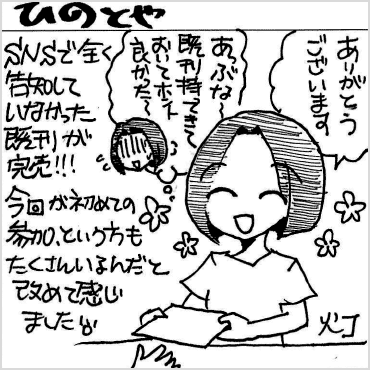 ひのとや
ありがとう
ございます
あっぶな〜
既刊持ってきて
おいてホント
良かった〜
SNSで全く
告知して
いなかった
既刊が
完売!!!
今回が初めての
参加、という方も
たくさんいるんだと
改めて感じ
ました